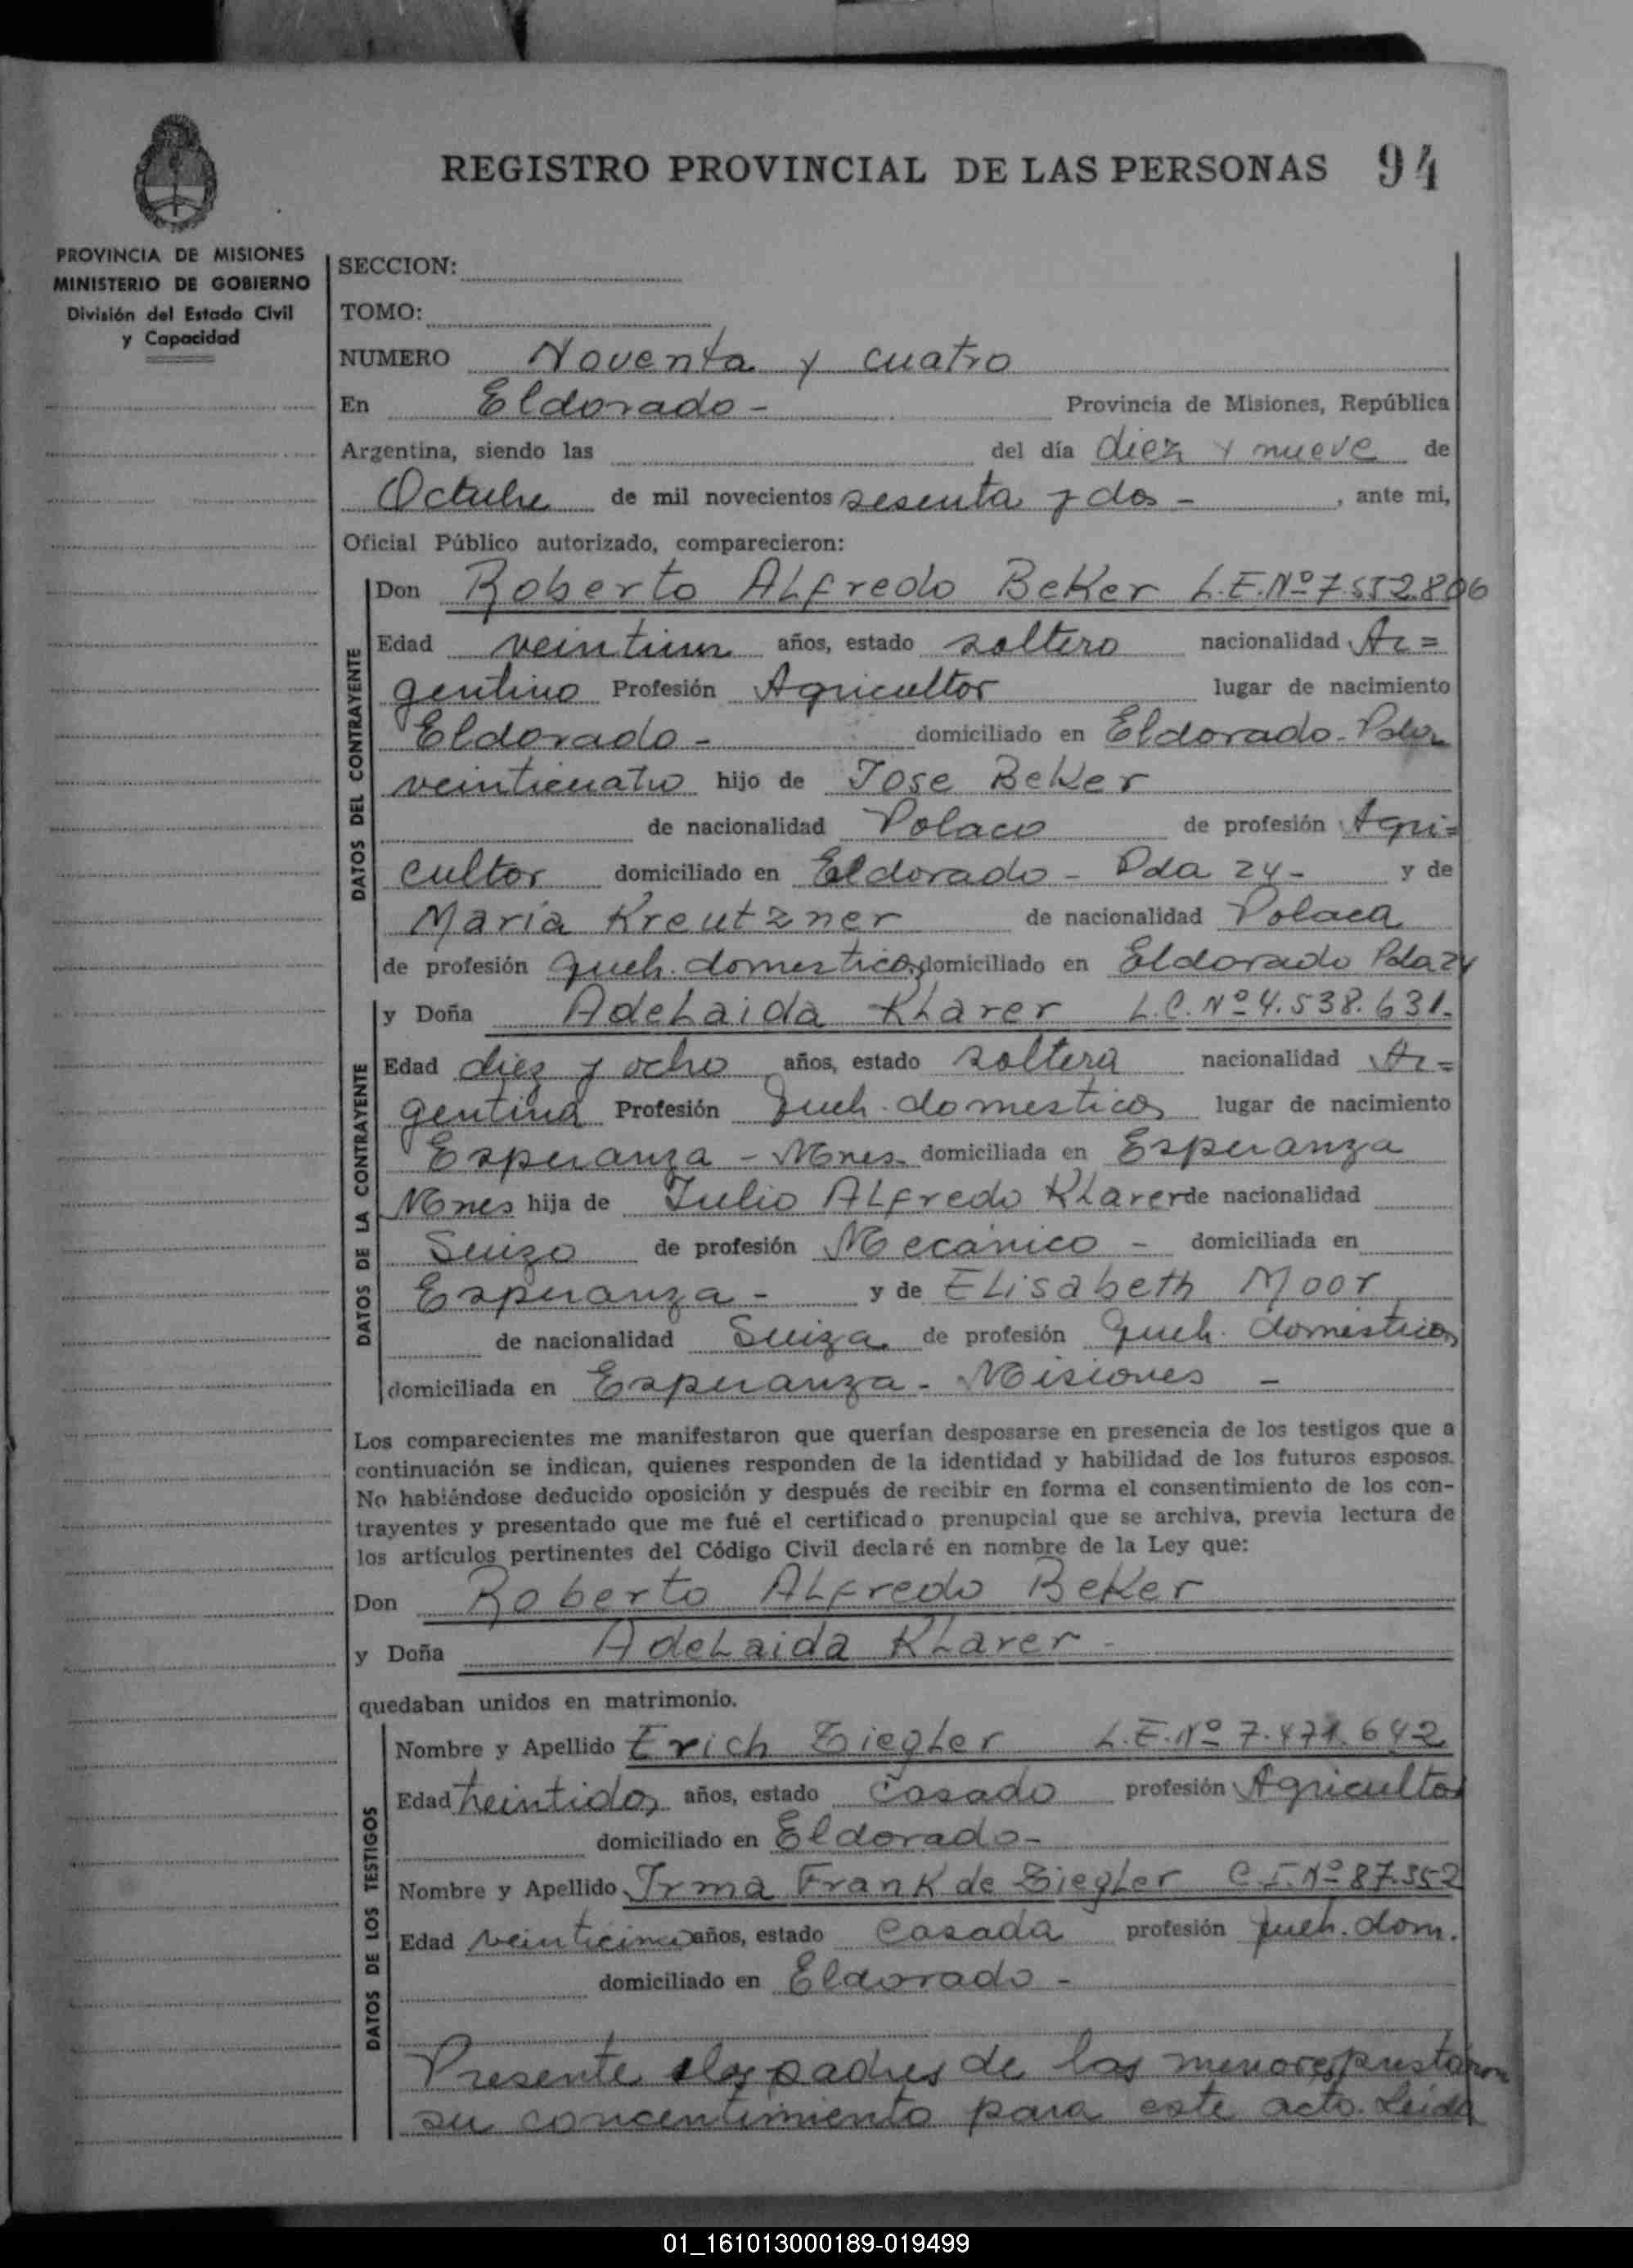 REGISTRO PROVINCIAL DE LAS PERSONAS 94
PROVINCIA DE MISIONES
MINISTERIO DE GOBIERNO
División del Estado Civil
y Capacidad
SECCION:
TOMO:
NUMERO Noventa y cuatro
En Eldorado - Provincia de Misiones, República
Argentina, siendo las del día diez y nueve de
Octubre de mil novecientos sesenta y dos - , ante mi,
Oficial Público autorizado, comparecieron:
DATOS DEL CONTRAYENTE
Don Roberto ALfredo Beker L.E.Nº 7.552.806
Edad veintiun años, estado soltero nacionalidad Ar=
gentino Profesión Agricultor lugar de nacimiento
Eldorado - domiciliado en Eldorado -
veinticuatro hijo de Jose Beker
de nacionalidad Polaco de profesión Agri=
cultor domiciliado en Eldorado - Pda 24 - y de
María Kreutzner de nacionalidad Polaca
de profesión queh. domesticos domiciliado en Eldorado Pda 24
DATOS DE LA CONTRAYENTE
y Doña AdeLaida KLarer L.C. Nº 4.538.631.
Edad diez y ocho años, estado soltera nacionalidad Ar=
gentina Profesión queh. domesticos lugar de nacimiento
Esperanza - Mnes. domiciliada en Esperanza
Mnes hija de Julio ALfredo KLarer de nacionalidad
Suizo de profesión Mecánico - domiciliada en
Esperanza - y de ELisabeth Moor
de nacionalidad Suiza de profesión queh. domesticos
domiciliada en Esperanza - Misiones -
Los comparecientes me manifestaron que querían desposarse en presencia de los testigos que a
continuación se indican, quienes responden de la identidad y habilidad de los futuros esposos.
No habiéndose deducido oposición y después de recibir en forma el consentimiento de los con-
trayentes y presentado que me fué el certificado prenupcial que se archiva, previa lectura de
los artículos pertinentes del Código Civil declaré en nombre de la Ley que:
Don Roberto ALfredo Beker
y Doña AdeLaida KLarer -
quedaban unidos en matrimonio.
DATOS DE LOS TESTIGOS
Nombre y Apellido Erich ZiegLer L.E.Nº 7.471.642
Edad veintidos años, estado casado profesión Agricultor
domiciliado en Eldorado -
Nombre y Apellido Irma Frank de ZiegLer C.I.Nº 87.352
Edad veinticinco años, estado casada profesión queh. dom.
domiciliado en Eldorado -
Presente los padres de los menores prestaron
su concentimiento para este acto. Leida
01_161013000189-019499